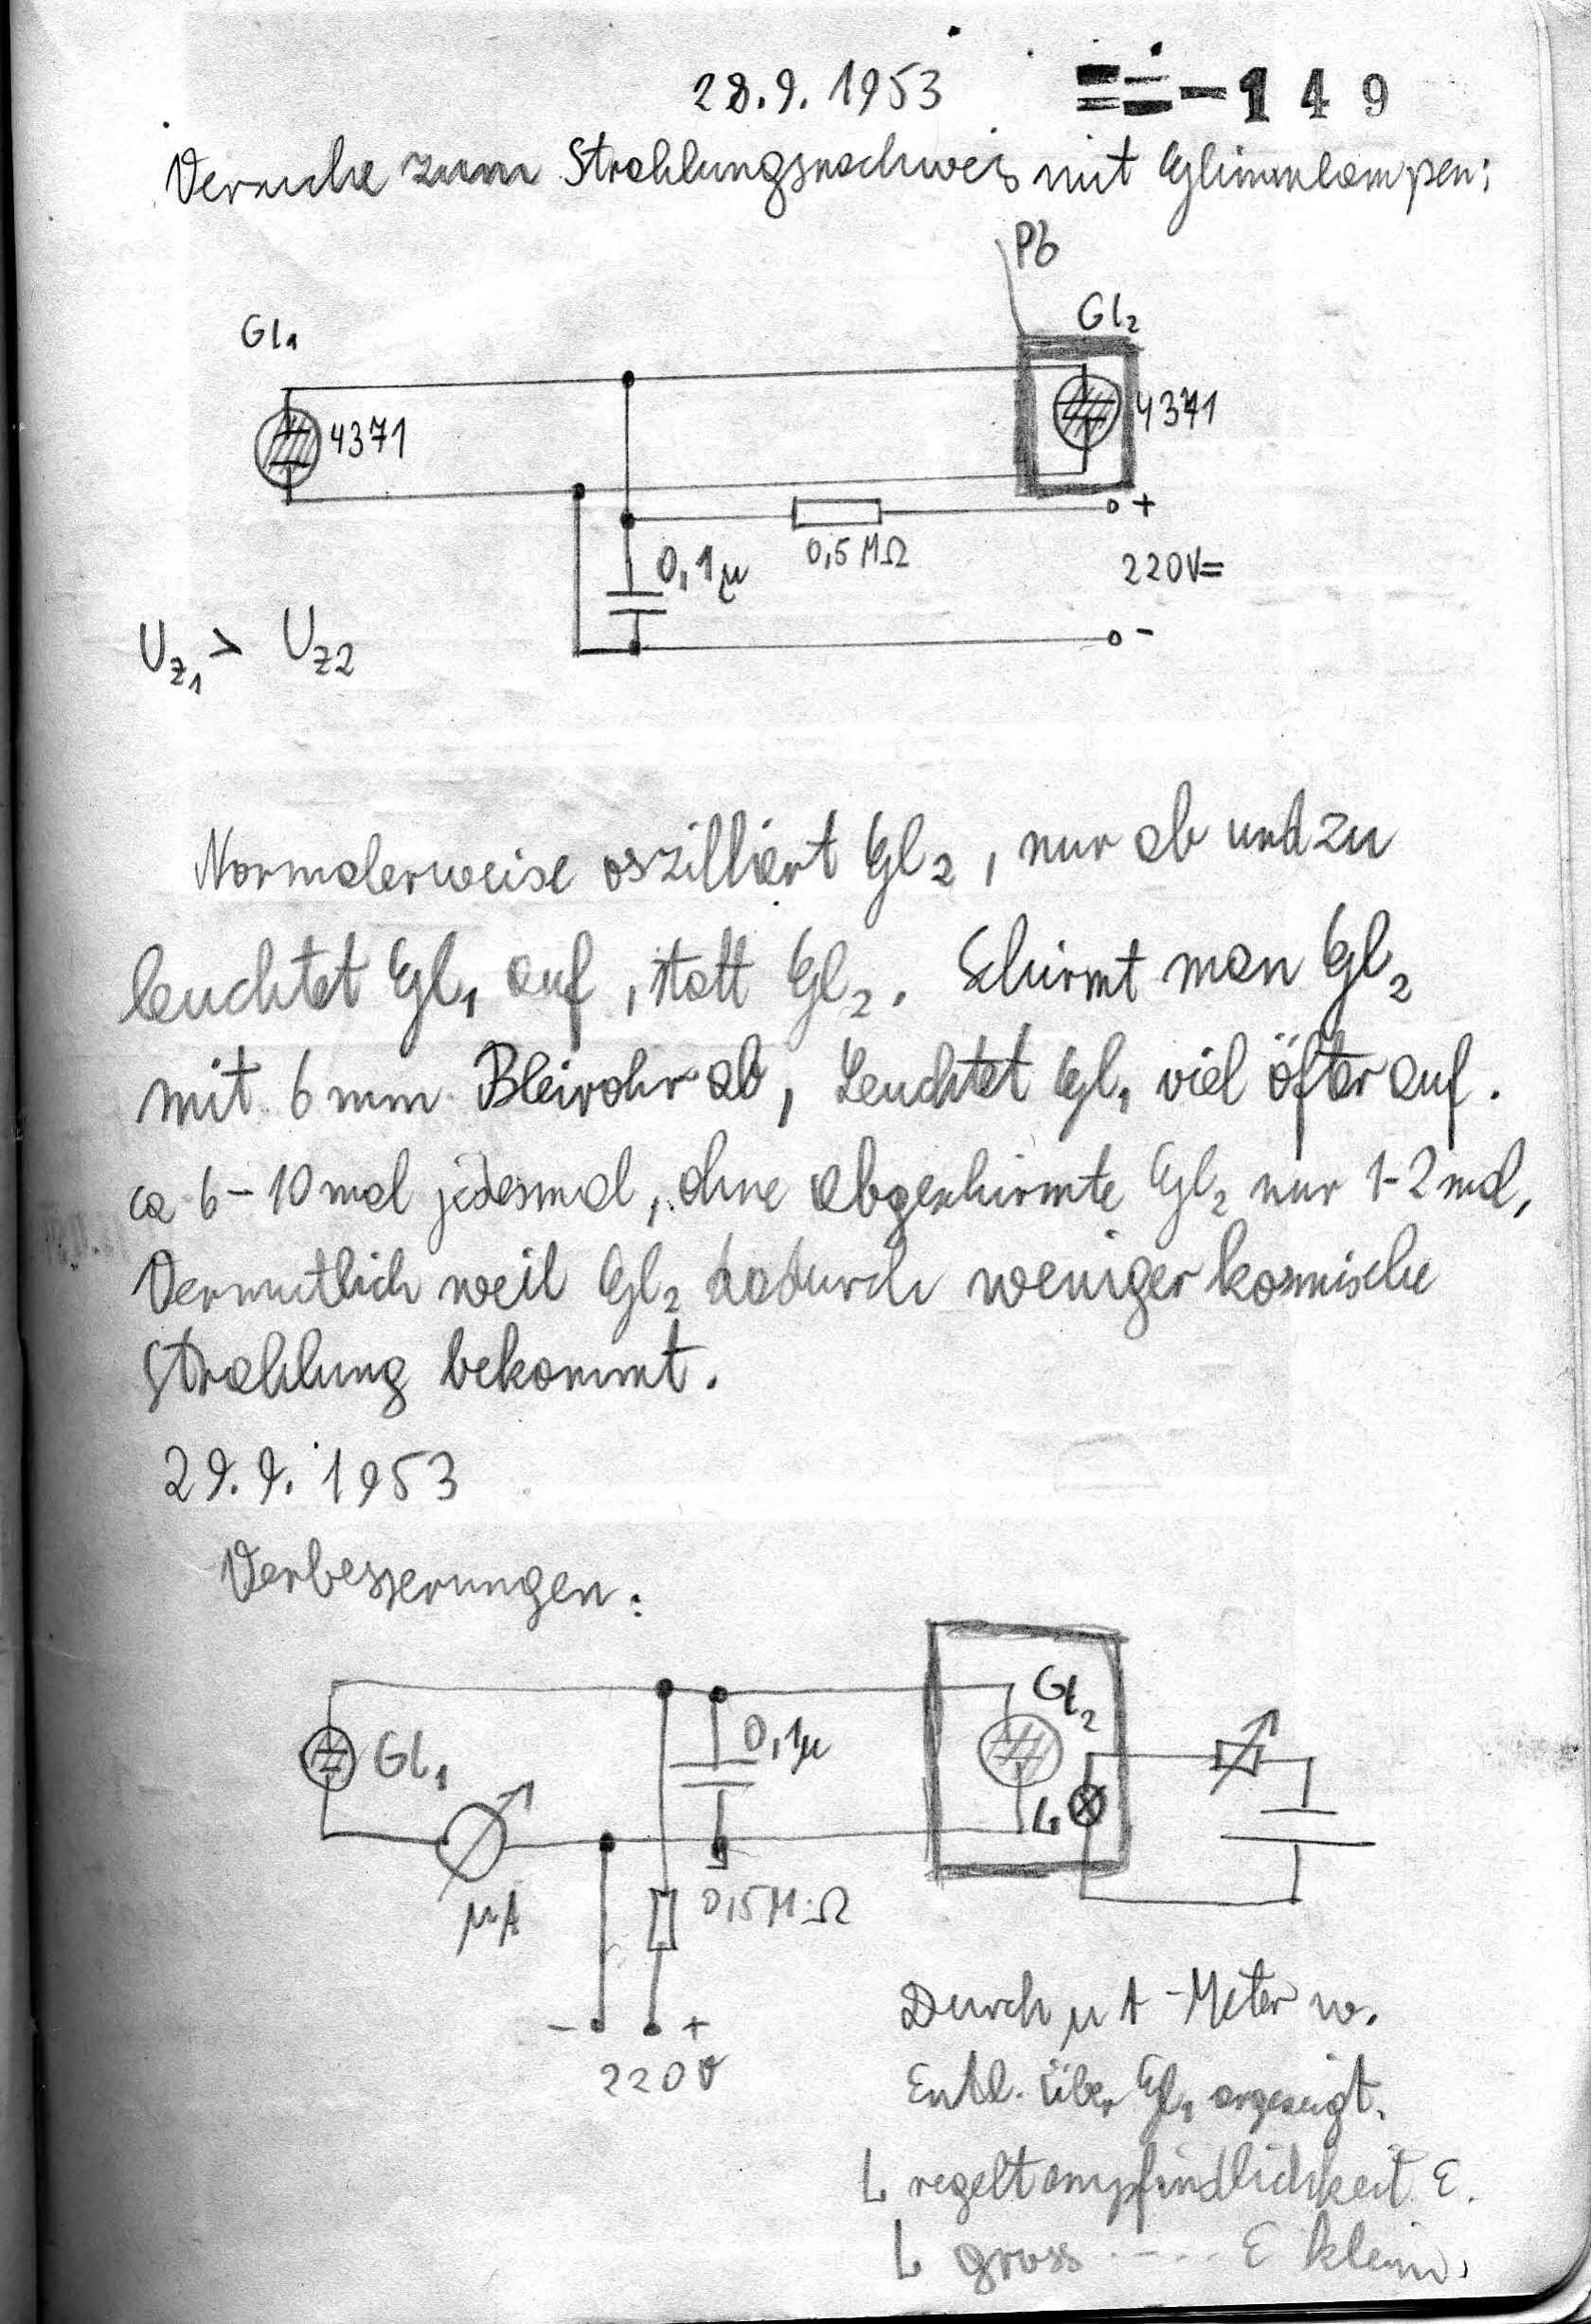 28.9.1953
149
Versuche zum Strahlungsnachweis mit Glimmlampen:
Pb
Gl1
Gl2
4371
4371
+
0,1µ
0,5 MΩ
220V=
-
Uz1 > Uz2
Normalerweise oszilliert Gl2, nur ab und zu
leuchtet Gl1 auf, statt Gl2. Schirmt man Gl2
mit 6 mm Bleirohr ab, Leuchtet Gl1 viel öfter auf.
ca 6-10 mal jedesmal, ohne abgeschirmte Gl2 nur 1-2 mal,
Vermutlich weil Gl2 dadurch weniger kosmische
Strahlung bekommt.
29.9.1953
Verbesserungen:
Gl2
0,1µ
Gl1
L
µA
0,5 MΩ
- +
220V
Durch µA-Meter w.
Entl. über Gl1 angezeigt.
L regelt empfindlichkeit E.
L gross ---- E klein.